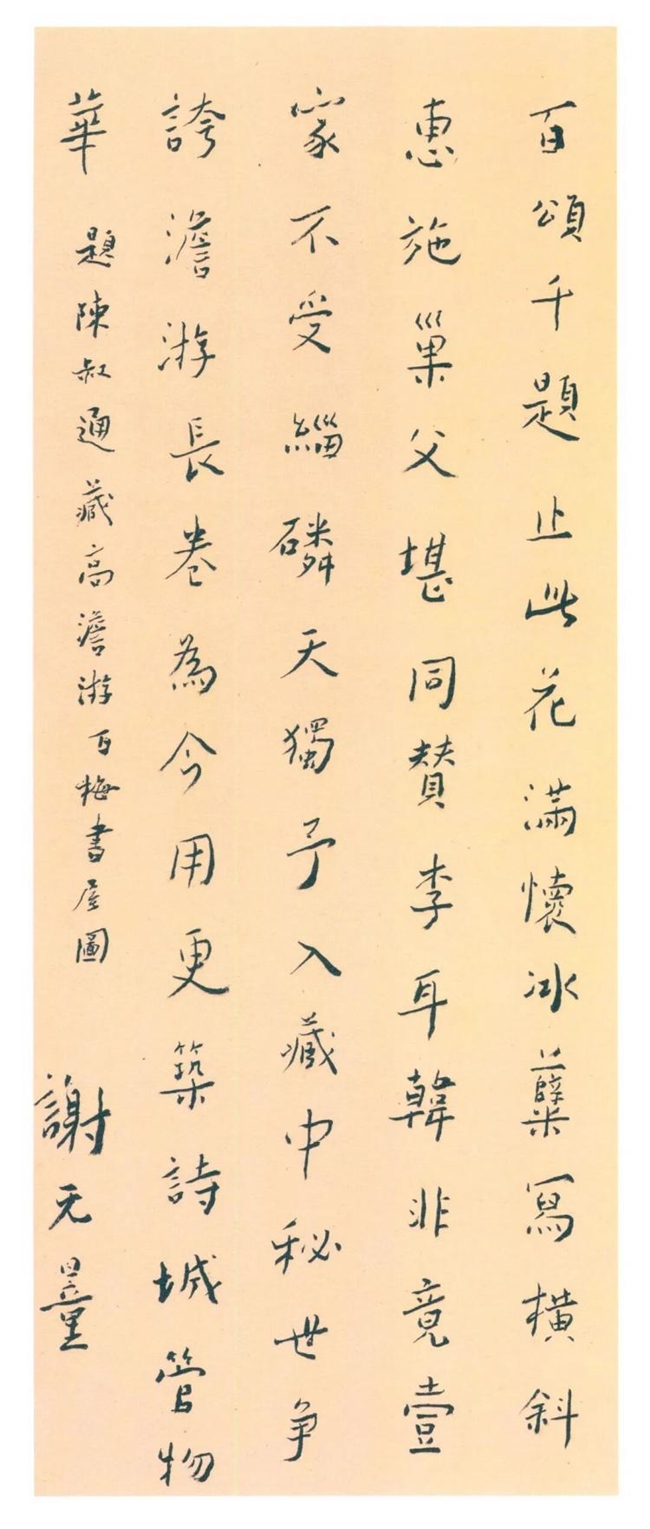 百頌千題止此花滿懷冰蘗寫橫斜
惠施巢父堪同贊李耳韓非竟壹
家不受緇磷天獨予入藏中秘世争
誇澹游長卷為今用更築詩城管物
華 題陳叔通藏高澹游百梅書屋圖 謝无量